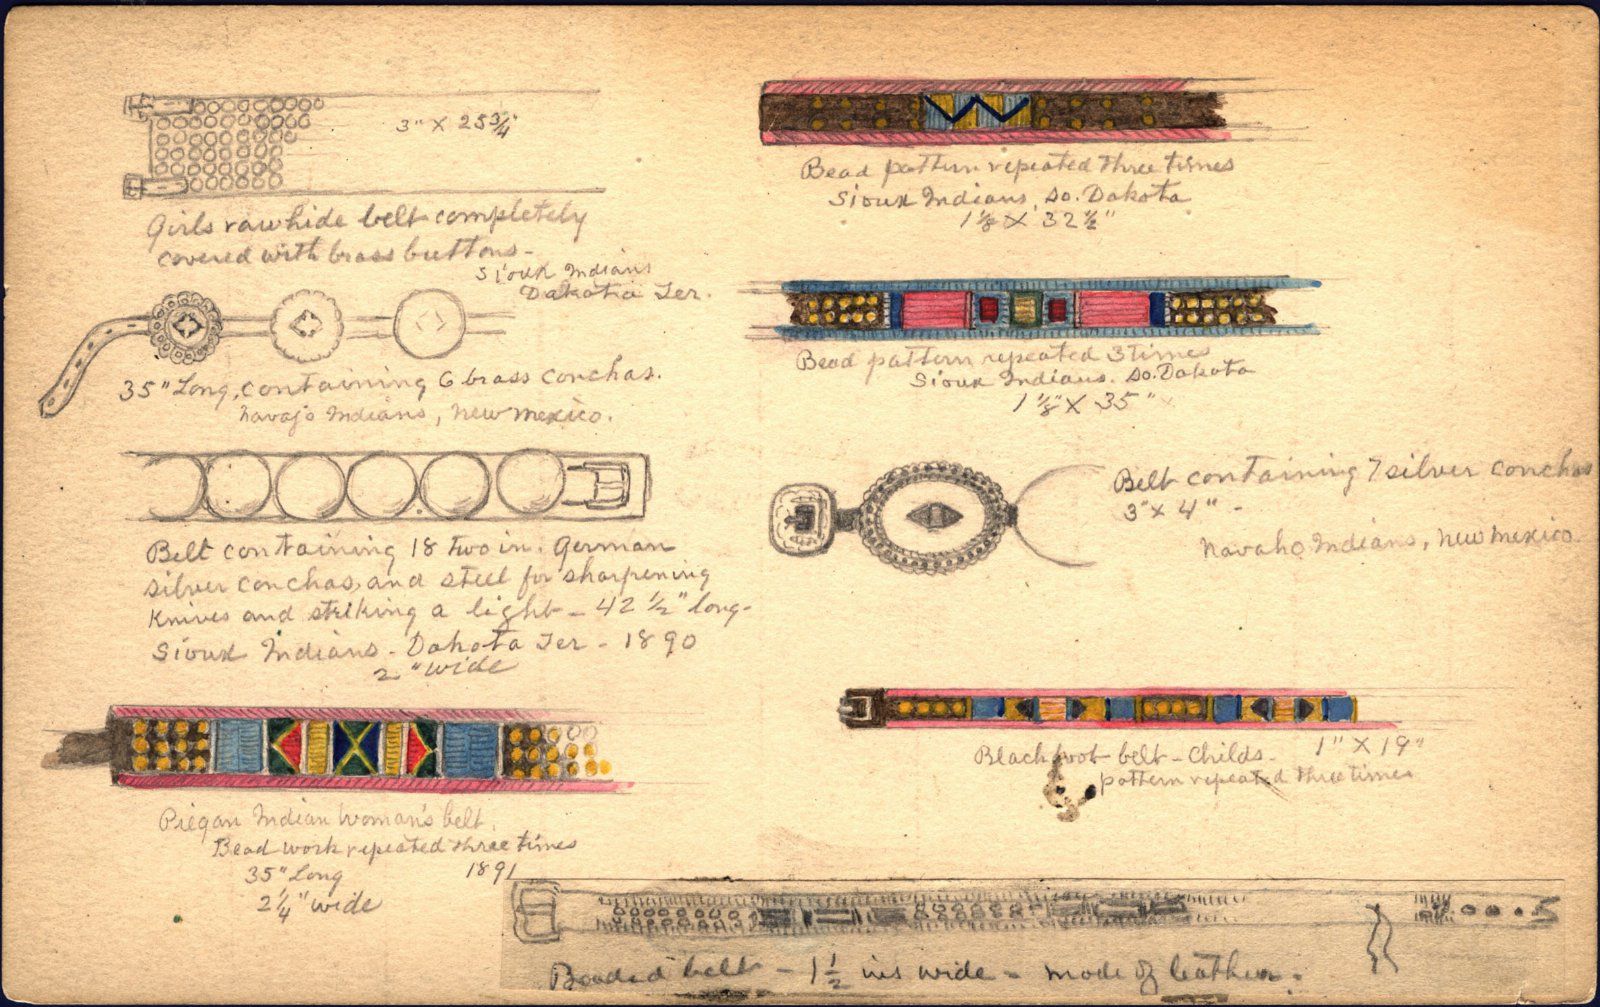 3" X 25 3/4"
Girls rawhide belt completely
covered with brass buttons -
Sioux Indians
Dakota Ter.
35" Long, containing 6 brass conchas.
Navajo Indians, New Mexico.
Belt containing 18 two in. German
silver conchas, and steel for sharpening
knives and striking a light - 42 1/2" long -
Sioux Indians - Dakota Ter - 1890
2" wide
Piegan Indian Woman's belt.
Bead work repeated three times
35" Long 1891
2 1/4" wide
Bead pattern repeated three times
Sioux Indians, So. Dakota
1 1/8 X 32 1/2"
Bead pattern repeated 3 times
Sioux Indians. So. Dakota
1 1/8" X 35"
Belt containing 7 silver conchas
3" x 4" -
Navaho Indians, New Mexico.
Blackfoot belt - Childs - 1" X 19"
pattern repeated three times
Beaded belt - 1 1/2 ins wide - made of leather.